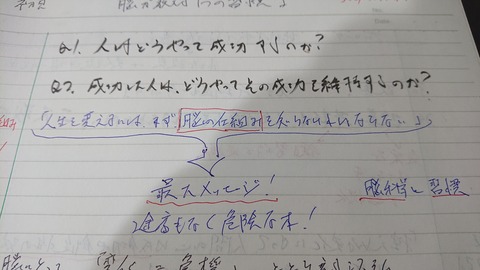 脳が教える1つの習慣」
Q1. 人はどうやって成功するのか?
Q2. 成功した人は、どうやってその成功を維持するのか?
「人生を変えるには、まず脳の仕組みを知らなければならない。」
最大メッセージ!
脳科学と習慣
途方もなく危険な本!